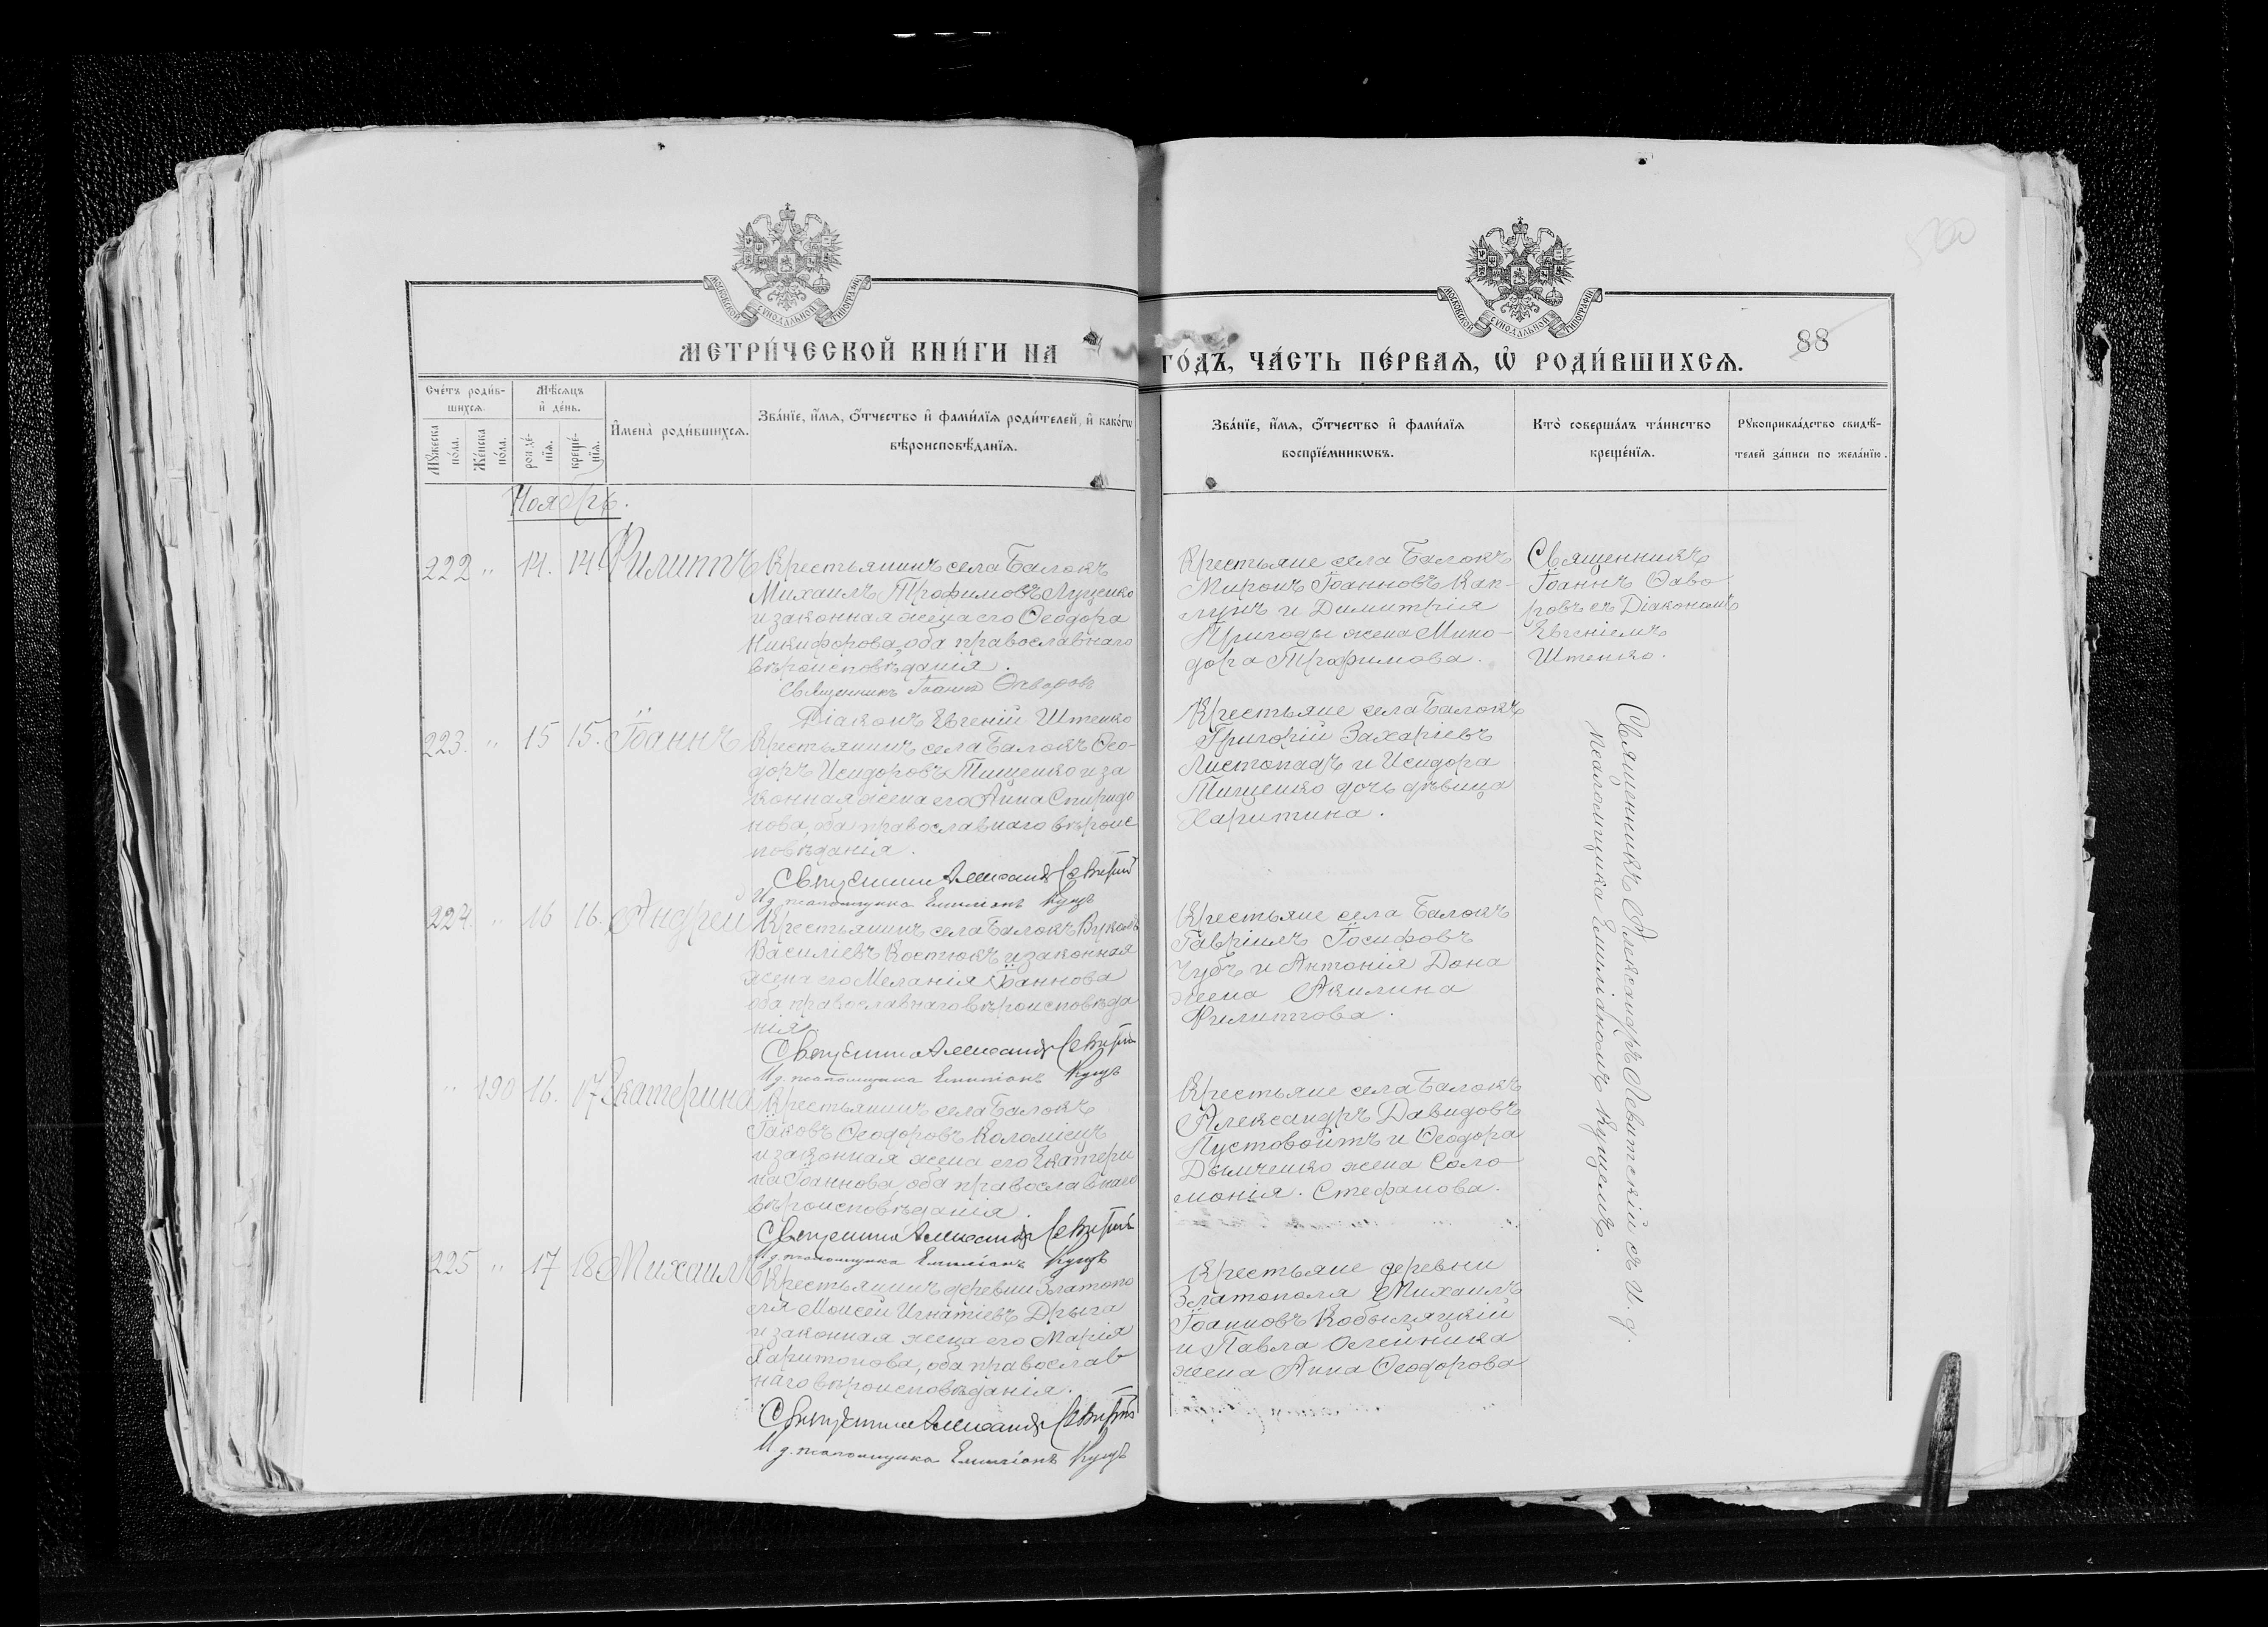 МОСКОВСКОЙ СѴНОДАЛЬНОЙ ТИПОГРАФІИ
МОСКОВСКОЙ СѴНОДАЛЬНОЙ ТИПОГРАФІИ
МЕТРИ́ЧЕСКОЙ КНИ́ГИ НА ГО́ДЪ, ЧА́СТЬ ПЕ́РВАѦ, Ѽ РОДИ́ВШИХСѦ.
88
Сче́тъ роди́в-
шихсѧ.
Мѣ́сѧцъ
и҆ де́нь.
Мꙋ́жеска
по́ла.
Же́нска
по́ла.
рожде́-
нїѧ.
креще́-
нїѧ.
И҆мена̀ роди́вшихсѧ.
Зва́нїе, и҆́мѧ, ѻ҆́тчество и҆ фами́лїѧ роди́телей, и҆ како́гѡ
вѣроисповѣ́данїѧ.
Зва́нїе, и҆́мѧ, ѻ҆́тчество и҆ фами́лїѧ
воспрїе́мникѡвъ.
Кто̀ соверша́лъ та́инство
креще́нїѧ.
Рꙋкоприкла́дство свидѣ́-
телей за́писи по жела́нїю.
Ноябрь.
222 " 14. 14 Филиппъ
Крестьянинъ села Балокъ
Михаилъ Трофимовъ Луценко
и законная жена его Ѳеодора
Никифорова, оба православнаго
вѣроисповѣданія.
Священникъ Іоаннъ Ѳаворовъ
Діаконъ Евгеній Штенко
Крестьяне села Балокъ
Миронъ Іоанновъ Кап-
лунъ и Димитрія
Пригоды жена Мино-
дора Трофимова.
Священникъ
Іоаннъ Ѳаво
ровъ съ Діакономъ
Евгеніемъ
Штенко.
223. " 15 15. Іоаннъ
Крестьянинъ села Балокъ Ѳео-
доръ Исидоровъ Тищенко и за
конная жена его Анна Спиридо
нова, оба православнаго вѣроис
повѣданія.
Священникъ Александръ Левитскій
И. д. псаломщика Емиліанъ Куцъ
Крестьяне села Балокъ
Григорій Захаріевъ
Листопадъ и Исидора
Тищенко дочь дѣвица
Харитина.
Священникъ Александръ Левитскій съ И. д.
псаломщика Емиліаномъ Куцемъ.
224. " 16 16. Андрей
Крестьянинъ села Балокъ Вуколъ
Василіевъ Костюкъ и законная
жена его Меланія Іоаннова
оба православнаго вѣроисповѣда
нія.
Священникъ Александръ Левитскій
И. д. псаломщика Емиліанъ Куцъ
Крестьяне села Балокъ
Гавріилъ Іосифовъ
Чубъ и Антонія Дона
жена Акилина
Филиппова.
" 190 16. 17 Екатерина
Крестьянинъ села Балокъ
Іаковъ Ѳеодоровъ Коломіецъ
и законная жена его Екатери
на Іоаннова, оба православнаго
вѣроисповѣданія.
Священникъ Александръ Левитскій
И. д. псаломщика Емиліанъ Куцъ
Крестьяне села Балокъ
Александръ Давидовъ
Пустовойтъ и Ѳеодора
Дымченко жена Соло
монія. Стефанова.
225 " 17 18 Михаилъ
Крестьянинъ деревни Златопо
ля Моисей Игнатіевъ Дрыга
и законная жена его Марія
Харитонова, оба православ
наго вѣроисповѣданія.
Священникъ Александръ Левитскій
И. д. псаломщика Емиліанъ Куцъ
Крестьяне деревни
Златополя Михаилъ
Іоанновъ Кобыляцкій
и Павла Олейника
жена Анна Ѳеодорова